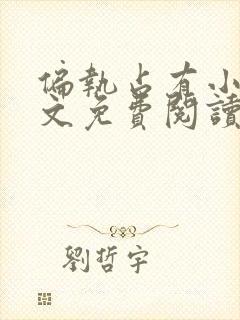 偏執占有小
文免費閱讀
劉哲宇